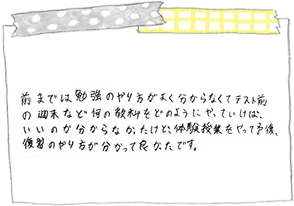 前までは勉強のやり方がよく分からなくてテスト前
の週末など何の教科をどのようにやっていけば、
いいのか分からなかったけど、体験授業をやって予習、
復習のやり方が分かって良かったです。